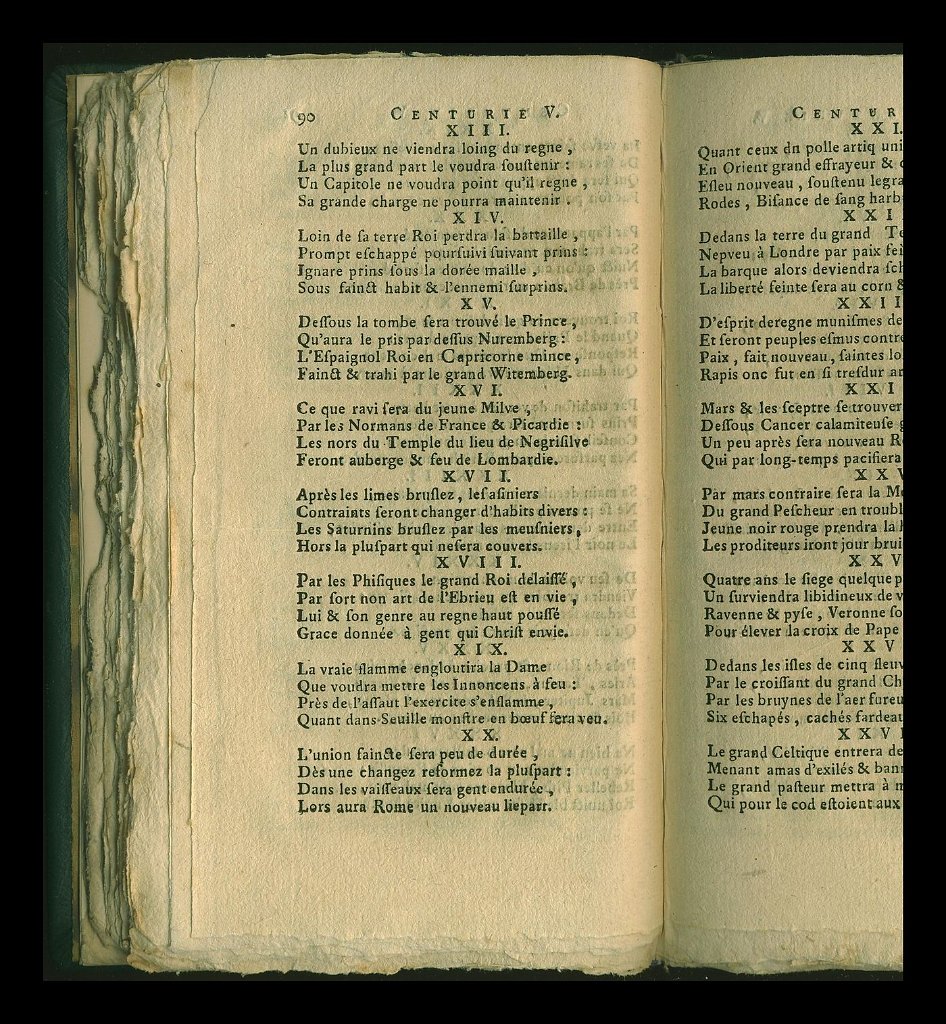 90 CENTURIE V.
XIII.
Un dubieux ne viendra loing du regne,
La plus grand part le voudra ſouſtenir :
Un Capitole ne voudra point qu'il regne,
Sa grande charge ne pourra maintenir.
XIV.
Loin de ſa terre Roi perdra la battaille,
Prompt eſchappé pourſuivi ſuivant prins :
Ignare prins ſous la dorée maille,
Sous fainct habit & l'ennemi ſurprins.
XV.
Deſſous la tombe ſera trouvé le Prince,
Qu'aura le pris par deſſus Nuremberg :
L'Eſpaignol Roi en Capricorne mince,
Fainct & trahi par le grand Witemberg.
XVI.
Ce que ravi ſera du jeune Milve,
Par les Normans de France & Picardie :
Les nors du Temple du lieu de Negriſilve
Feront auberge & feu de Lombardie.
XVII.
Après les limes bruſlez, leſ aſiniers
Contraints ſeront changer d'habits divers :
Les Saturnins bruſlez par les meuſniers,
Hors la pluſpart qui neſera couvers.
XVIII.
Par les Phiſiques le grand Roi delaiſſé,
Par ſort non art de l'Ebrieu eſt en vie,
Lui & ſon genre au regne haut pouſſé
Grace donnée à gent qui Chriſt envie.
XIX.
La vraie flamme engloutira la Dame
Que voudra mettre les Innoncens à feu :
Près de l'aſſaut l'exercite s'enflamme,
Quant dans Seuille monſtre en bœuf ſera veu.
XX.
L'union faincte ſera peu de durée,
Dès une changez reformez la pluſpart :
Dans les vaiſſeaux ſera gent endurée,
Lors aura Rome un nouveau liepart.
CENTUR
XXI.
Quant ceux dn polle artiq uni
En Orient grand effrayeur &
Eſleu nouveau, ſouſtenu legra
Rodes, Biſance de ſang harb
XXI
Dedans la terre du grand Te
Nepveu à Londre par paix fei
La barque alors deviendra ſch
La liberté feinte ſera au corn &
XXII
D'eſprit deregne muniſmes de
Et ſeront peuples eſmus contre
Paix, fait nouveau, ſaintes lo
Rapis onc fut en ſi treſdur ar
XXI
Mars & les ſceptre ſe trouver
Deſſous Cancer calamiteuſe g
Un peu après ſera nouveau R
Qui par long-temps pacifiera
XXV
Par mars contraire ſera la Mo
Du grand Peſcheur en troubl
Jeune noir rouge prendra la h
Les proditeurs iront jour brui
XXV
Quatre ans le ſiege quelque p
Un ſurviendra libidineux de v
Ravenne & pyſe, Veronne ſo
Pour élever la croix de Pape
XXV
Dedans les iſles de cinq fleuv
Par le croiſſant du grand Ch
Par les bruynes de l'aer fureu
Six eſchapés, cachés fardeau
XXVI
Le grand Celtique entrera de
Menant amas d'exilés & bann
Le grand paſteur mettra à m
Qui pour le cod eſtoient aux